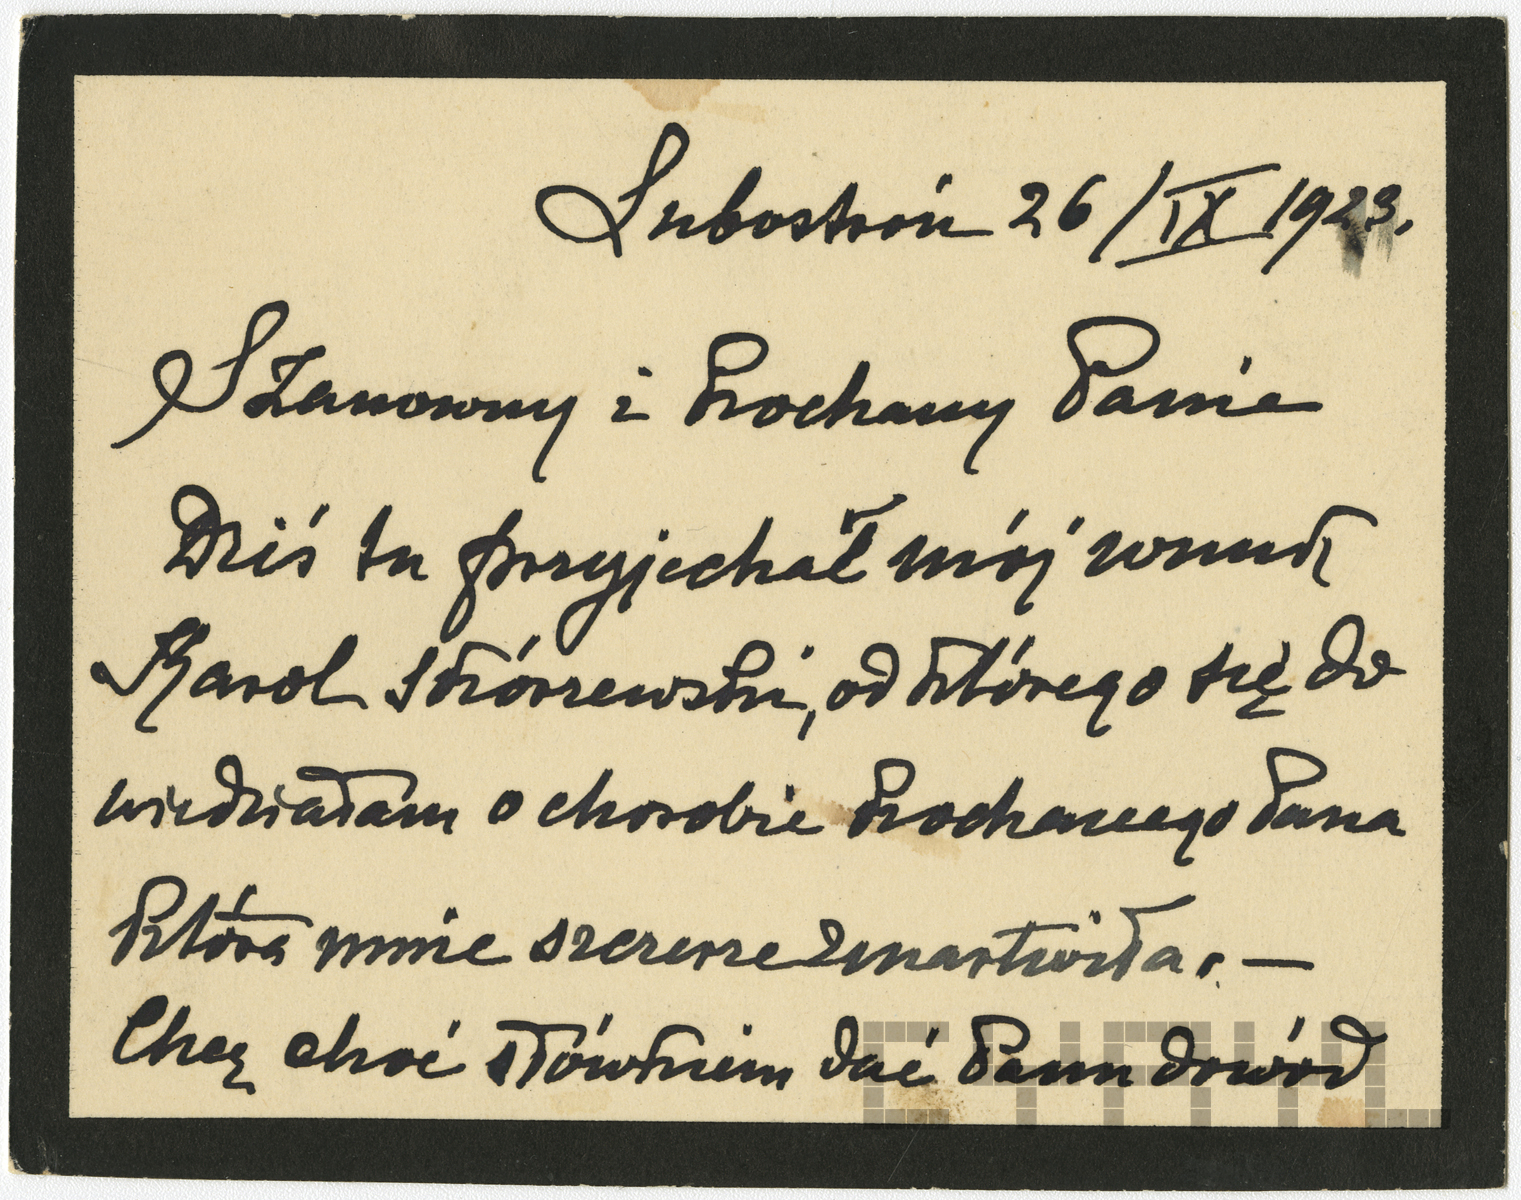 Lubostroń 26/IX 1923.
Szanowny i Kochany Panie
Dziś tu przyjechał mój wnuk
Karol Skórzewski, od którego się do
wiedziałam o chorobie Kochanego Pana
która mnie szczerze zmartwiła. —
Chcę choć słówkiem dać Panu dowód